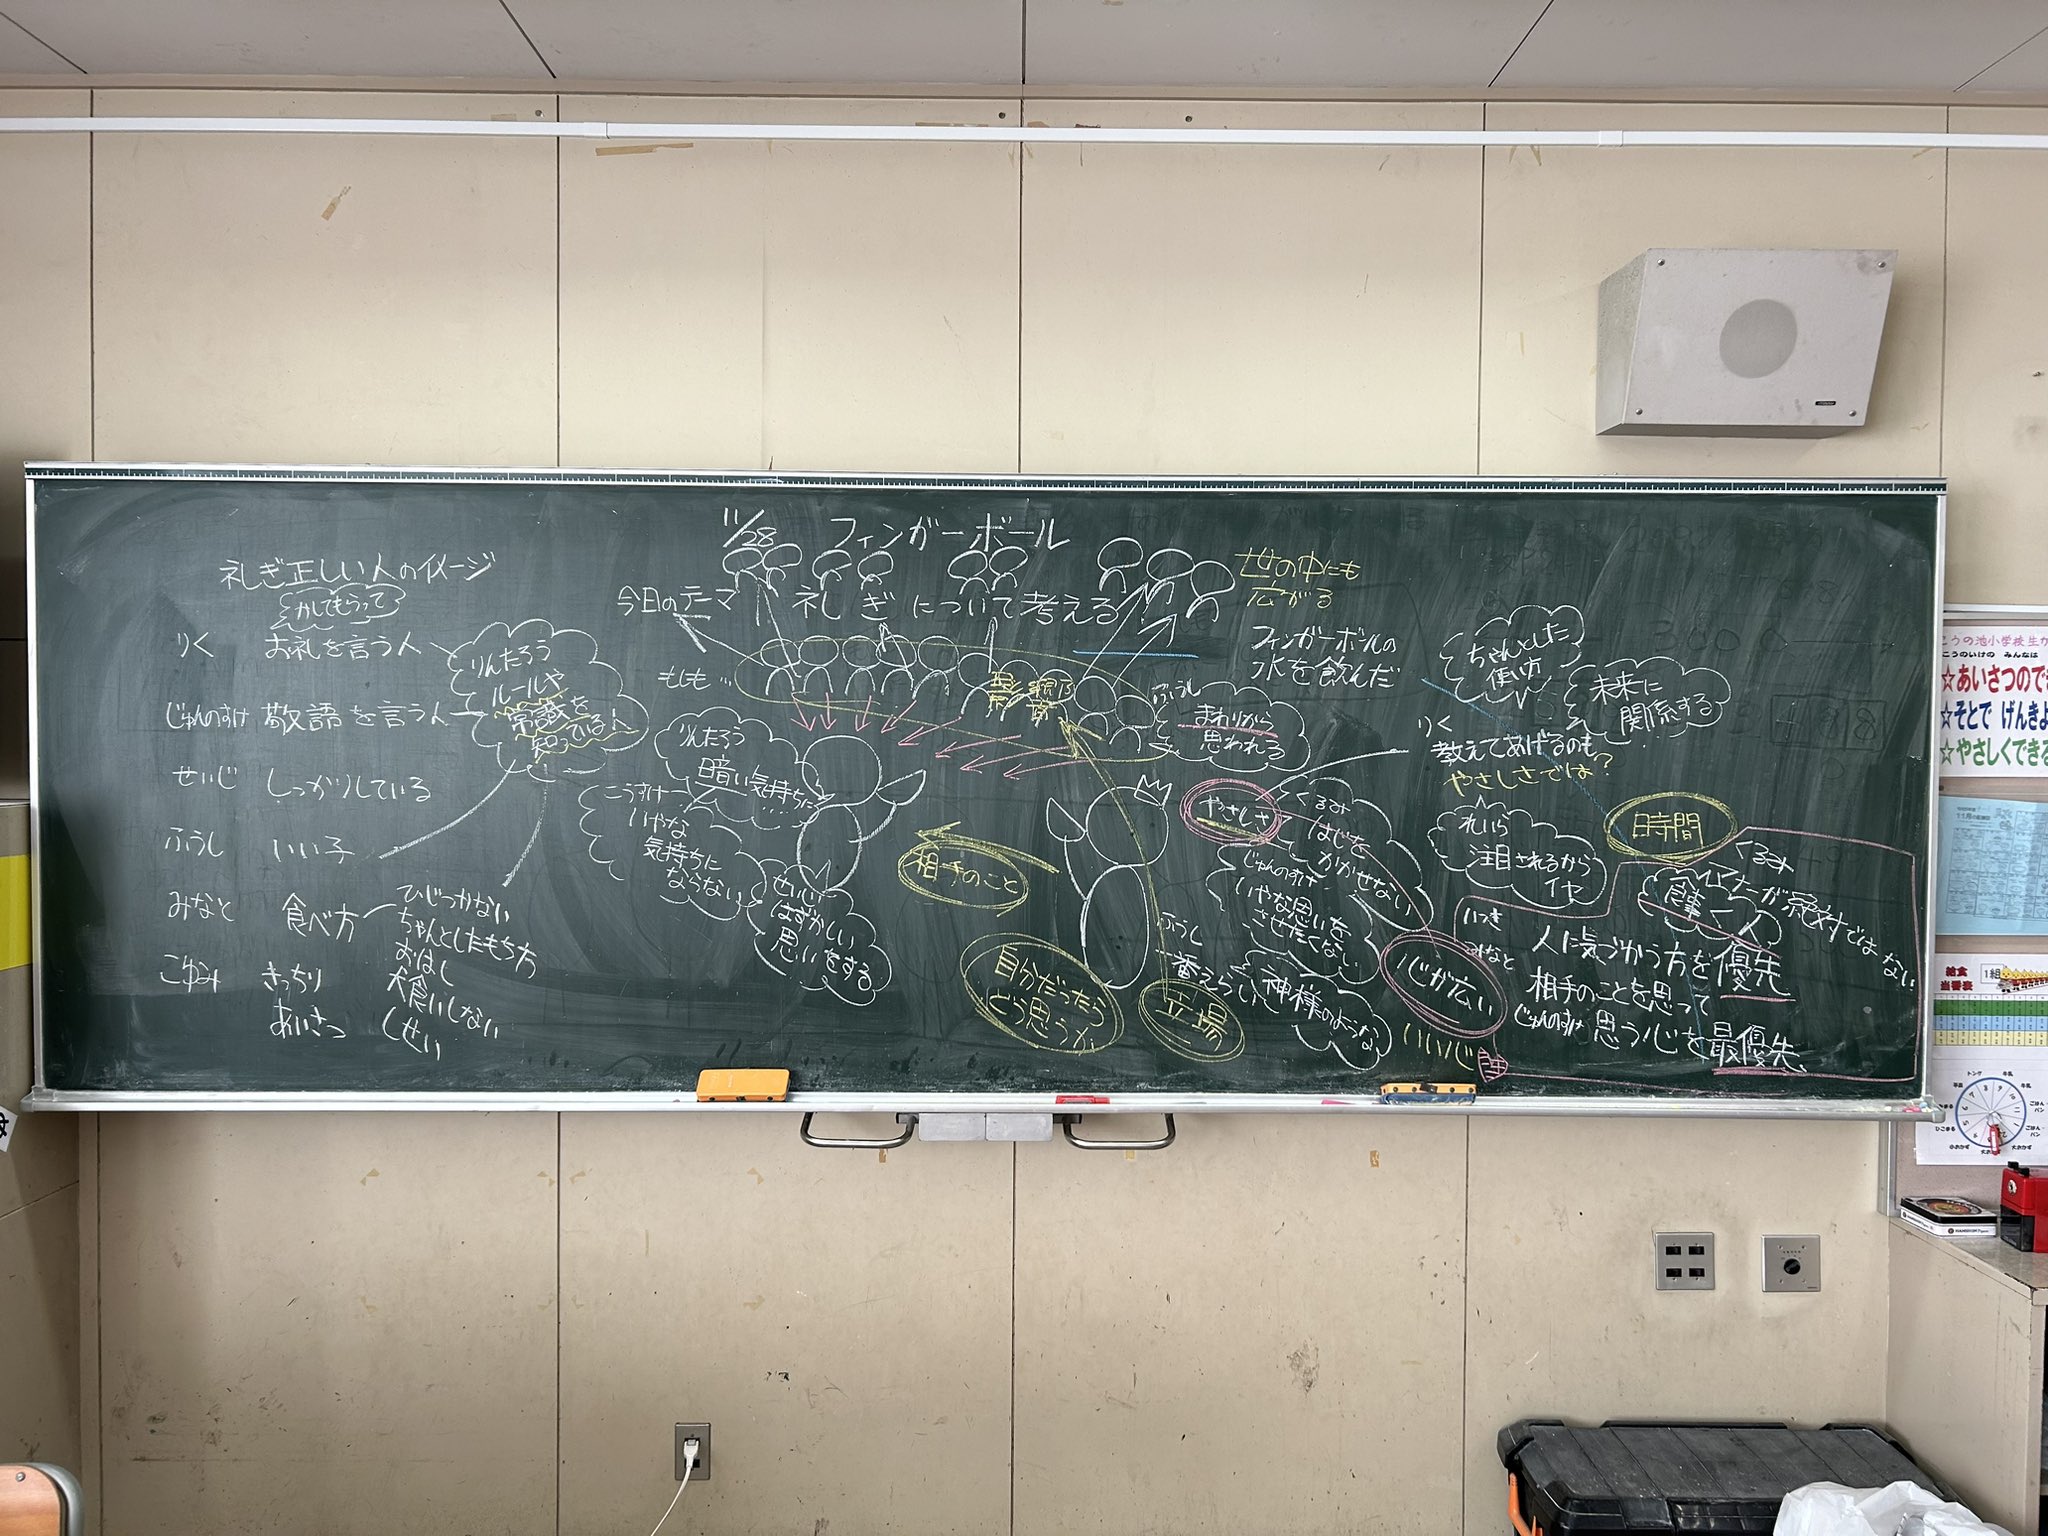 11/28 フィンガーボール
今日のテーマ 礼ぎについて考える
礼ぎ正しい人のイメージ
かしてもらって
りく お礼を言う人
じゅんのすけ 敬語を言う人
せいじ しっかりしている
ふうし いい子
みなと 食べ方
ひじつかない
ちゃんとしたもち方
おはし
犬食いしない
しせい
こゆみ きっちり
あいさつ
りんたろう
ルールや
常識を
知っている人
もしも…
りんたろう
暗い気持ちに…
こうすけ
いやな
気持ちに
ならない
せいじ
はずかしい
思いをする
相手のこと
自分だったら
どう思うか
立場
ふうし
一番えらい
ふうし
まわりから
思われる
世の中にも
広がる
フィンガーボールの
水を飲んだ
やさしさ
くるみ
はじを
かかせない
じゅんのすけ
いやな思いを
させたくない
神様のような
心が広い
いい心
ちゃんとした
使い方
未来に
関係する
りく
教えてあげるのも?
やさしさでは
れいら
注目されるから
イヤ
時間
くるみ
マナーが絶対ではない
食事<人
いつき
人に気づかう方を優先
みなと
相手のことを思って
じゅんのすけ 思う心を最優先
こうの池小学校生が
こうのいけの みんなは
☆あいさつので
☆そとで げんきよ
☆やさしくできる
給食
当番表
1組